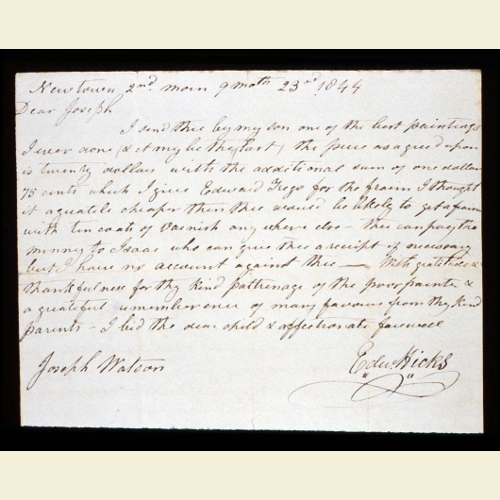 Newtown 2nd morn 9 moth 23rd 1844
Dear Joseph
I send thee by my son one of the best paintings
I ever done (& it may be the last) the price as agreed upon
is twenty dollars with the additional sum of one dollar
75 cents which I give Edward Trego for the fraim I thought
it a quatile cheaper then thee would be likely to get a fraim
with ten coats of varnish any where else - thee can pay the
money to Isaac who can give thee a receipt if necessary
but I have no account against thee — With gratitude &
thankfulness for thy kind patrenage of the poor painter &
a grateful rememberence of many favours from thy kind
parents - I bid the dear child & affectionate farewell
Joseph Watson
Edw. Hicks